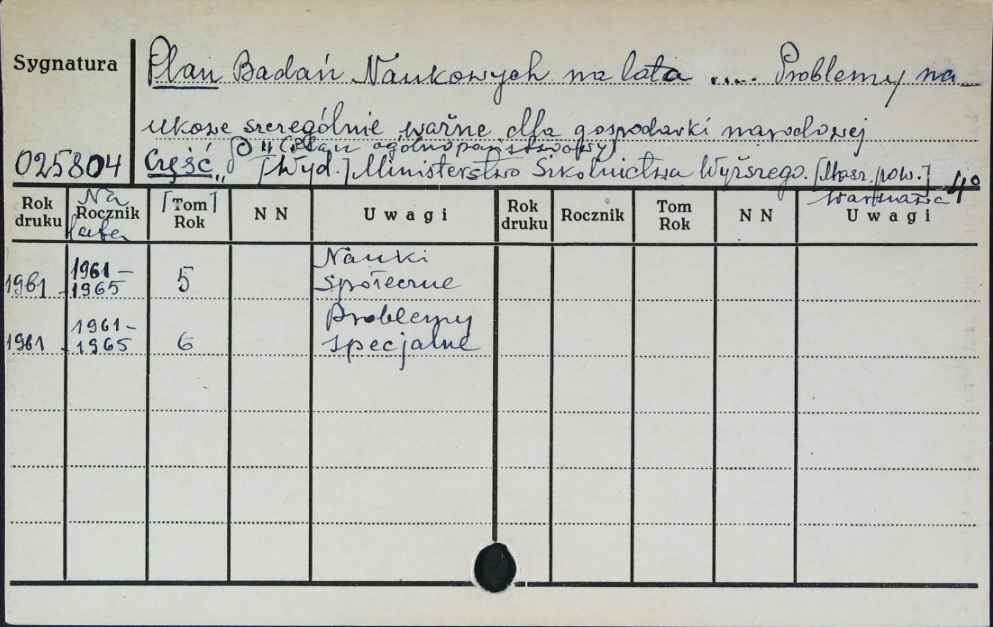 Sygnatura
Plan Badań Naukowych na lata .... Problemy na-
ukowe szczególnie ważne dla gospodarki narodowej
(Plan ogólnopaństwowy)
025804 Część [Wyd.] Ministerstwo Szkolnictwa Wyższego. [Masz. pow.] 4°
Warszawa
Rok druku Na Rocznik lata [Tom] Rok NN Uwagi Rok druku Rocznik Tom Rok NN Uwagi
1961 1961-1965 5 Nauki społeczne
1961 1961-1965 6 Problemy specjalne